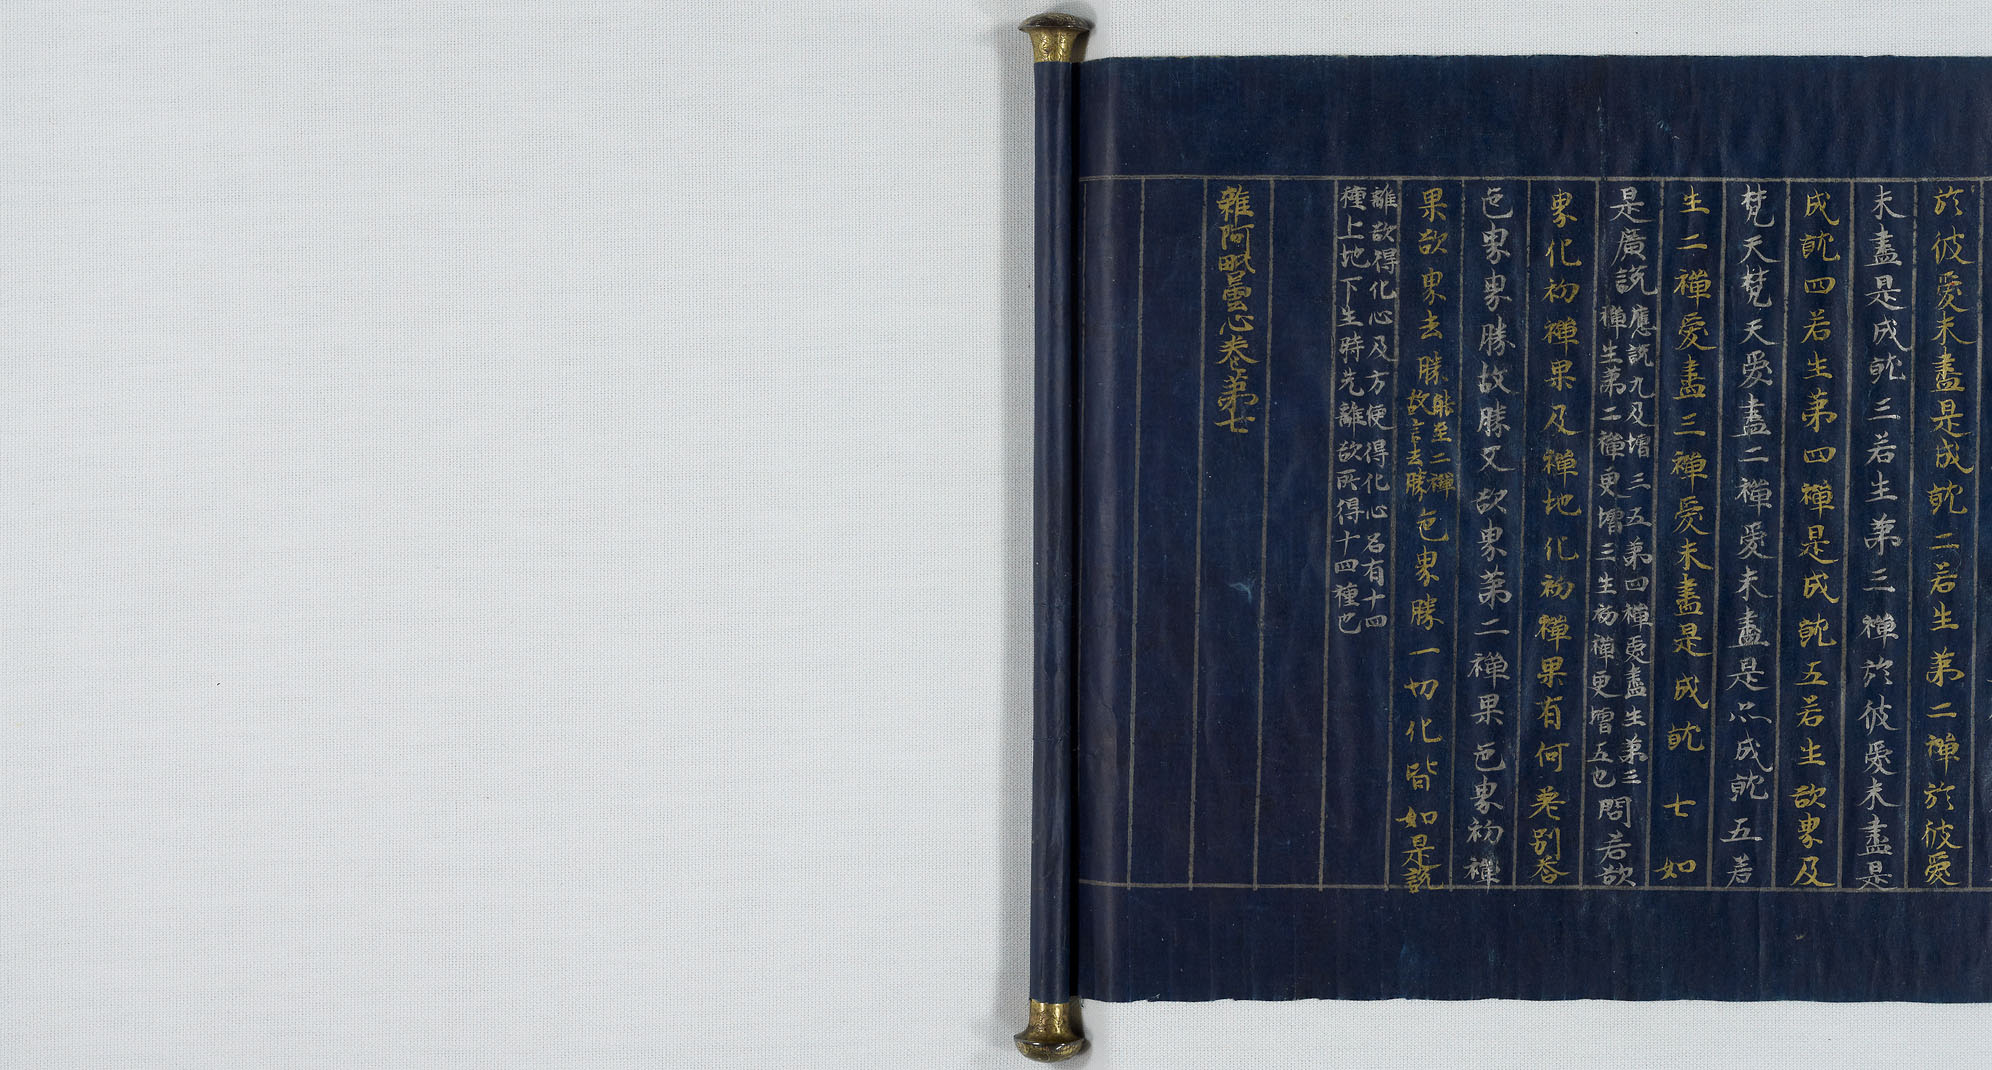 於彼愛未盡是成就二若生第二禪於彼愛
未盡是成就三若生第三禪於彼愛未盡是
成就四若生第四禪是成就五若生欲界及
梵天梵天愛盡二禪愛未盡是亦成就五若
生二禪愛盡三禪愛未盡是成就七如
是廣說應說九及增三五第四禪愛盡生第三禪生第二禪更增三生初禪更增五也問若欲
界化初禪果及禪地化初禪果有何差別答
色界界勝故勝又欲界第二禪果色界初禪
果欲界去勝能至二禪故言去勝色界勝一切化皆如是說
離欲得化心及方便得化心名有十四
種上地下生時先離欲所得十四種也
雜阿毗曇心卷第七